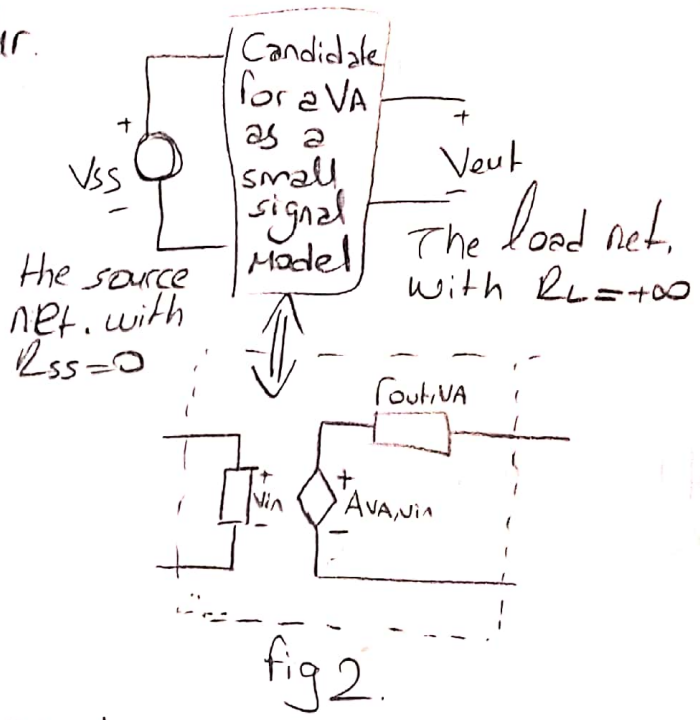 ır.
Candidate
for a VA
as a
small
signal
Model
+
Vss
-
+
Vout
-
The load net.
with RL=+∞
the source
net. with
Rss=0
rout,VA
+
Vin
-
+
AVA,vin
-
fig 2.